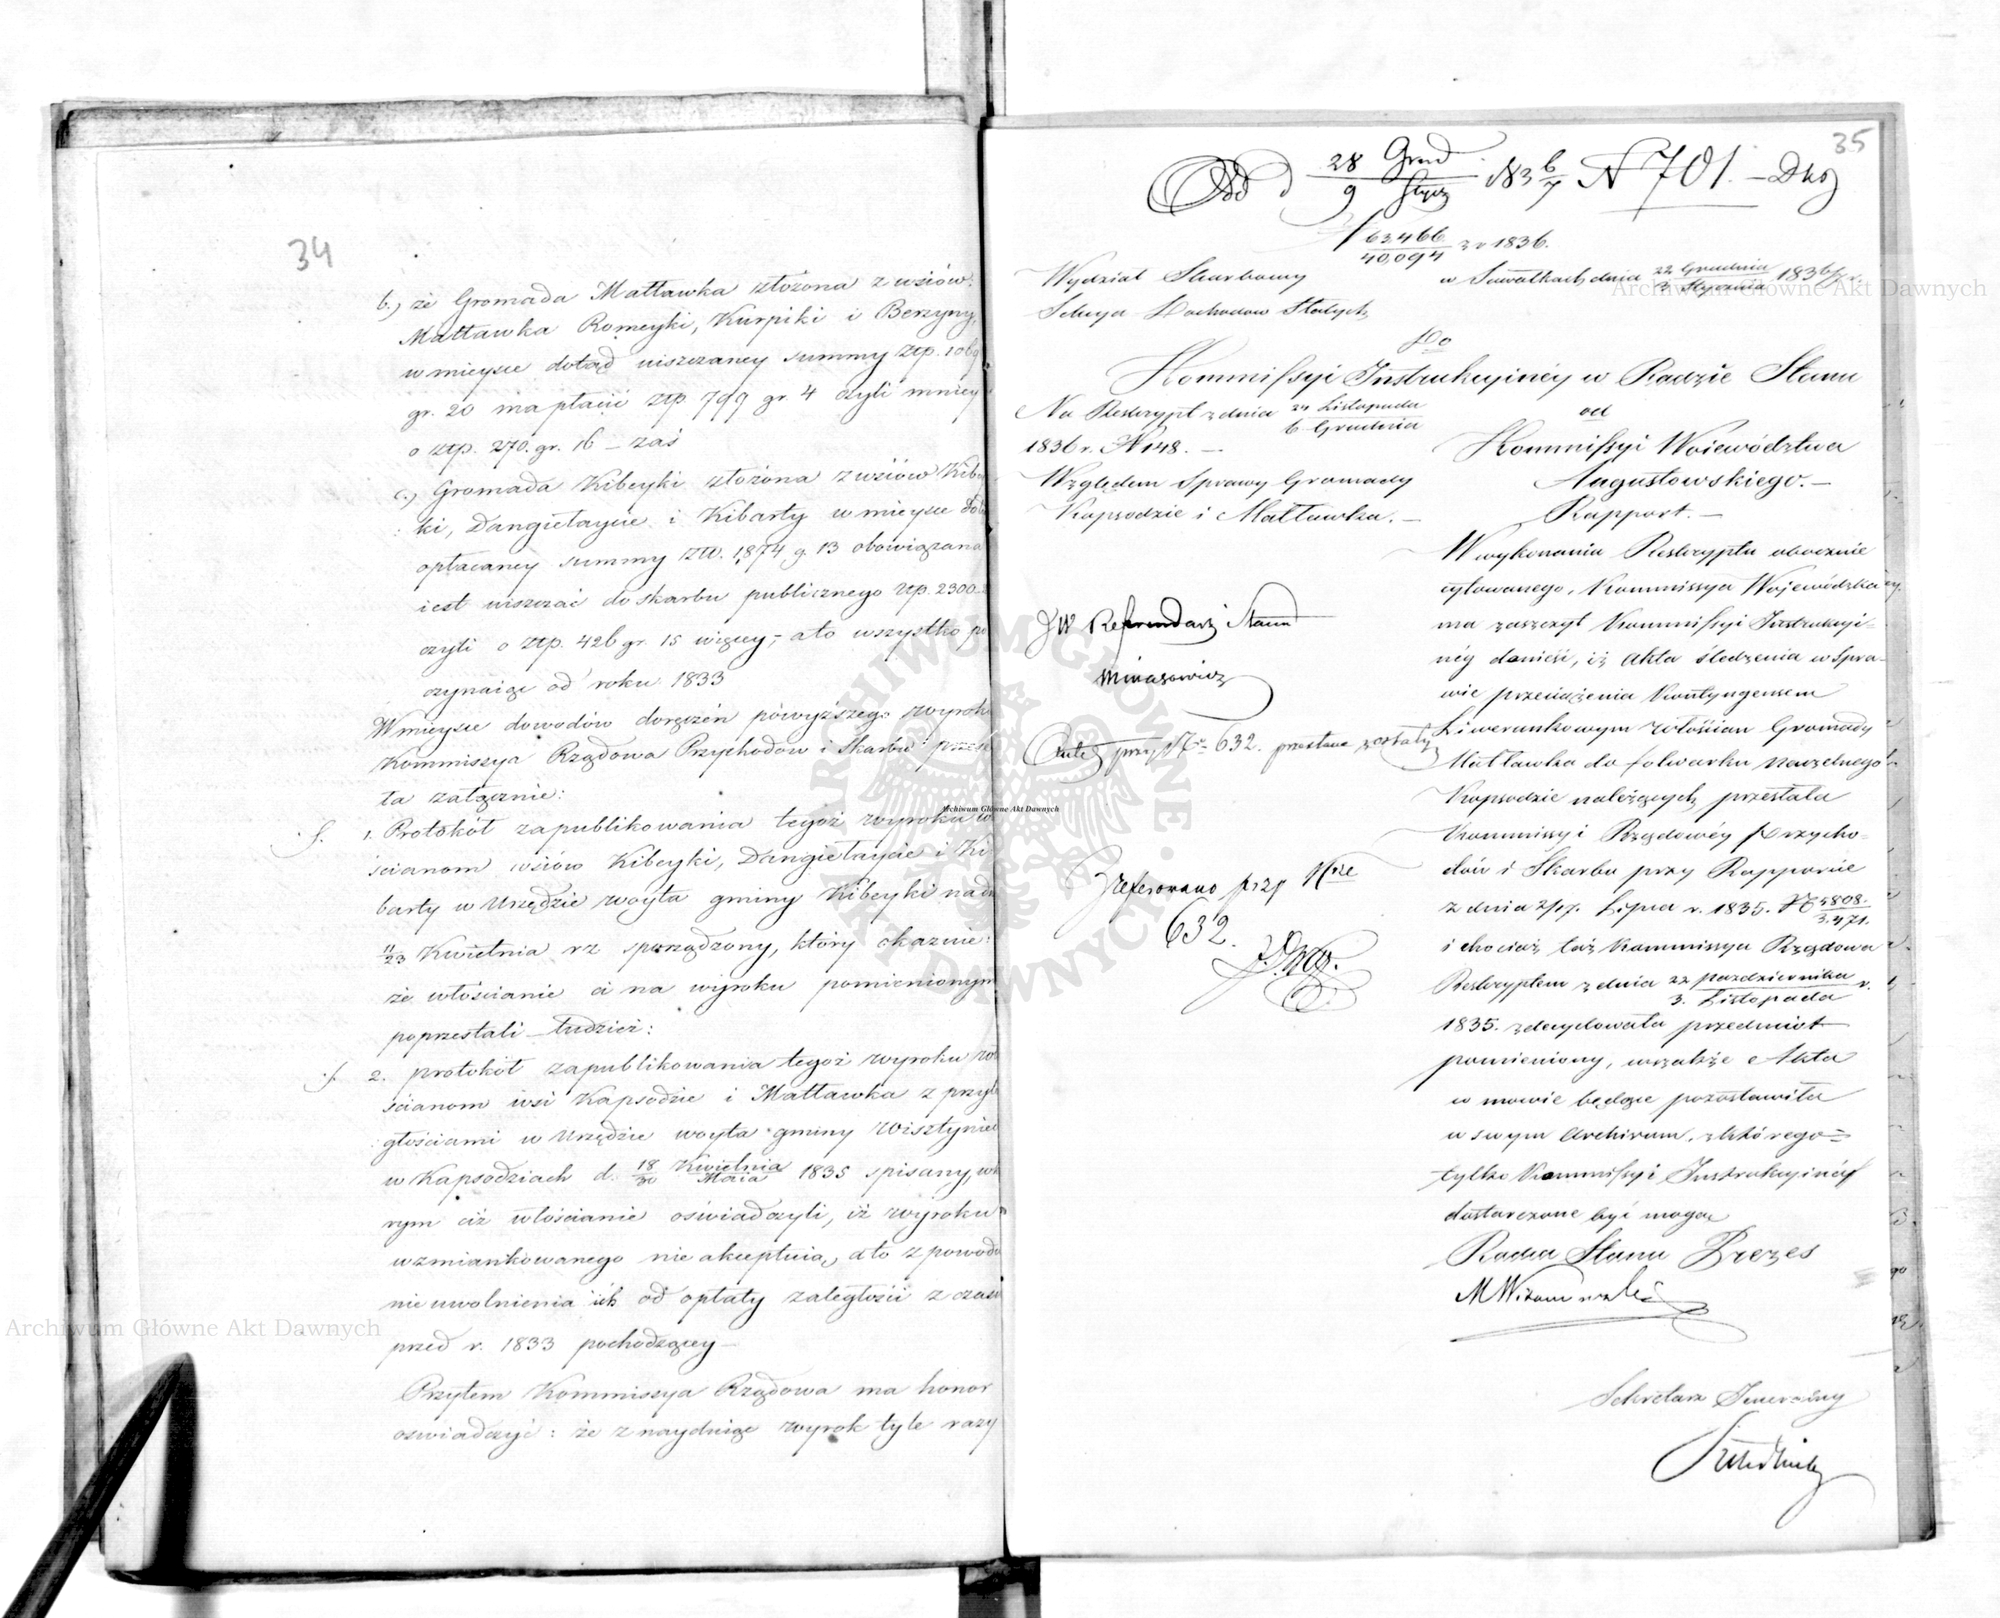 34
b.) że Gromada Matławka złożona z wsiów:
Matławka Romeyki, Kurpiki i Berzyny,
w mieysce dotąd uiszczaney summy Złp. 1069
gr. 20 ma płacić złp 799 gr. 4 czyli mniey
o złp. 270. gr. 16 – zaś
c.) Gromada Kibeyki złożona z wsiów Kibey
ki, Dangietaycie i Kibarty w mieysce dotą
opłacaney summy złp. 1,874 g. 13 obowiązana
iest uiszczać do skarbu publicznego złp. 2300
czyli o złp. 426 gr. 15 więcey, – a to wszystko po
czynaiąc od roku 1833
W mieysce dowodów doręczeń powyższego wyroku
Kommissya Rządowa Przychodów i Skarbu przesy
ła załącznie:
1. Protokół zapublikowania tegoż wyroku wło
ścianom wsiów Kibeyki, Dangietaycie i Ki
barty w Urzędzie woyta gminy Kibeyki na dn
11/23 Kwietnia rz sporządzony, który okazuie:
że włościanie ci na wyroku pomienionym
poprzestali – tudzież:
2. protokół zapublikowania tegoż wyroku wło
ścianom wsi Kapsodzie i Matławka z przyle
głościami w Urzędzie woyta gminy Wisztyniec
w Kapsodziach d. 18/30 Kwietnia/Maia 1835 spisany, w któ
rym ciż włościanie oświadczyli, iż wyroku
wzmiankowanego nie akceptuią, a to z powodu
nie uwolnienia ich od opłaty zaległości z czasu
przed r. 1833 pochodzącey –
Przytem Kommissya Rządowa ma honor
oświadczyć: że znayduiąc wyrok tyle razy
35
Odd d 28 Grud/9 Stycz 1836/7 N 701. –
N 63466/40,094 z r 1836.
Wydział Skarbowy
w Suwałkach dnia 22 Grudnia/3 Stycznia 1836/7 r.
Sekcya Dochodów Stałych
Do
Kommissyi Instrukcyinéy w Radzie Stanu
od
Kommissyi Woiewództwa
Augustowskiego. –
Rapport. –
Na Reskrypt z dnia 24 Listopada/6 Grudnia
1836 r. N 148. –
Względem Sprawy Gromady
Kapsodzie i Matławka. –
JW Referendarz Stanu
Minasowicz
przy N 632. przesłane zostały
Zreferowano przy Nrze
632.
W wykonaniu Reskryptu obocznie
cytowanego, Kommissya Woiewódzka
ma zaszczyt Kommissyi Instrukcyi-
néy donieść, iż Akta śledzenia w Spra-
wie przeciążenia Kontyngensem
Liwerunkowym włościan Gromady
Matławka do folwarku naczelnego
Kapsodzie należących przesłała
Kommissyi Rządowéy Przycho-
dów i Skarbu przy Rapporcie
z dnia 2/17. Lipca r. 1835. N 5808./3.471.
i chociaż taż Kommissya Rządowa
Reskryptem z dnia 22 października/3. Listopada r.
1835. zdecydowała przedmiot
pomieniony, wszakże Akta
w mowie będące pozostawiła
w swym Archivum, z którego
tylko Kommissyi Instrukcyinéy
dostarczone być mogą
Radca Stanu Prezes
Sekretarz Jeneralny
Archiwum Główne Akt Dawnych
Archiwum Główne Akt Dawnych
Archiwum Główne Akt Dawnych
ARCHIWUM GŁÓWNE AKT DAWNYCH